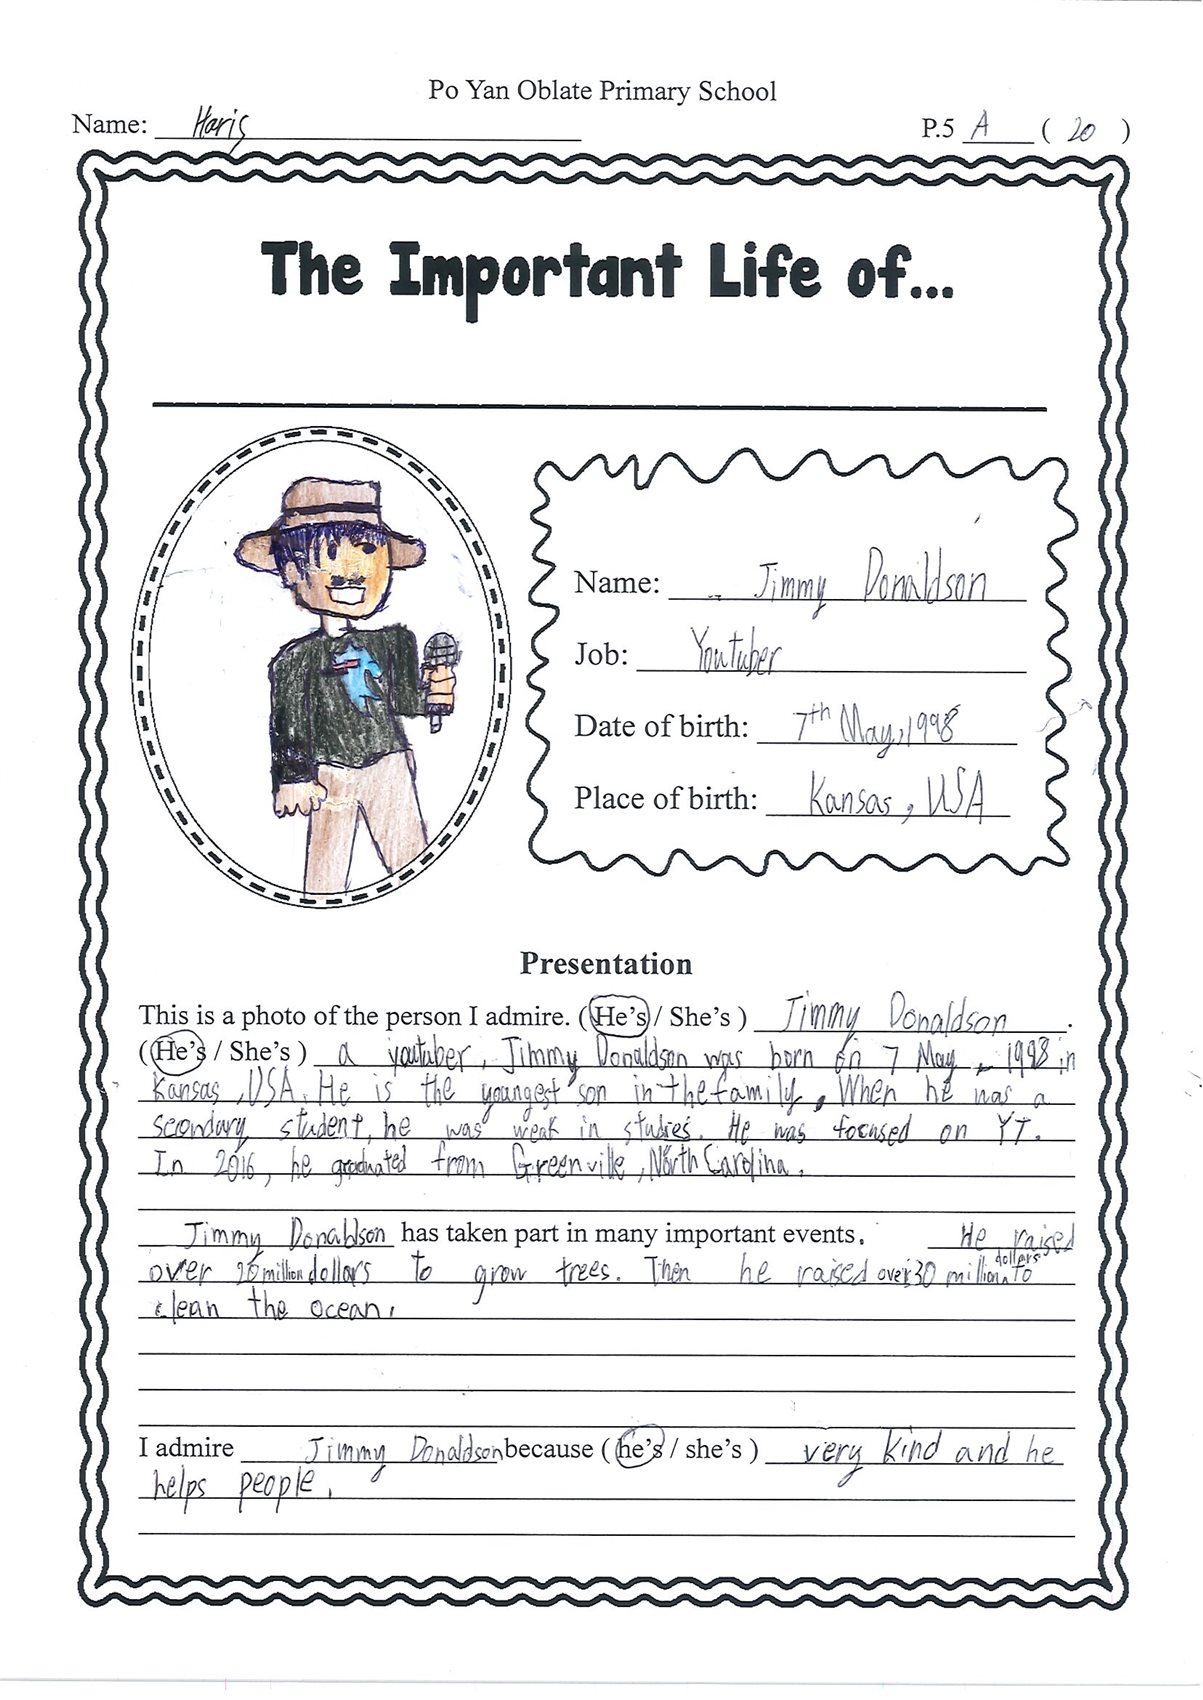 Po Yan Oblate Primary School
Name: Haris P.5 A ( 20 )
The Important Life of...
Name: Jimmy Donaldson
Job: Youtuber
Date of birth: 7th May, 1998
Place of birth: Kansas, USA
Presentation
This is a photo of the person I admire. ( He's / She's ) Jimmy Donaldson.
( He's / She's ) a youtuber. Jimmy Donaldson was born on 7 May, 1998 in
Kansas, USA. He is the youngest son in the family. When he was a
secondary student, he was weak in studies. He was focused on YT.
In 2016, he graduated from Greenville, North Carolina.
Jimmy Donaldson has taken part in many important events. He raised
over 20 million dollars to grow trees. Then he raised over 30 million dollars to
clean the ocean.
I admire Jimmy Donaldson because ( he's / she's ) very kind and he
helps people.